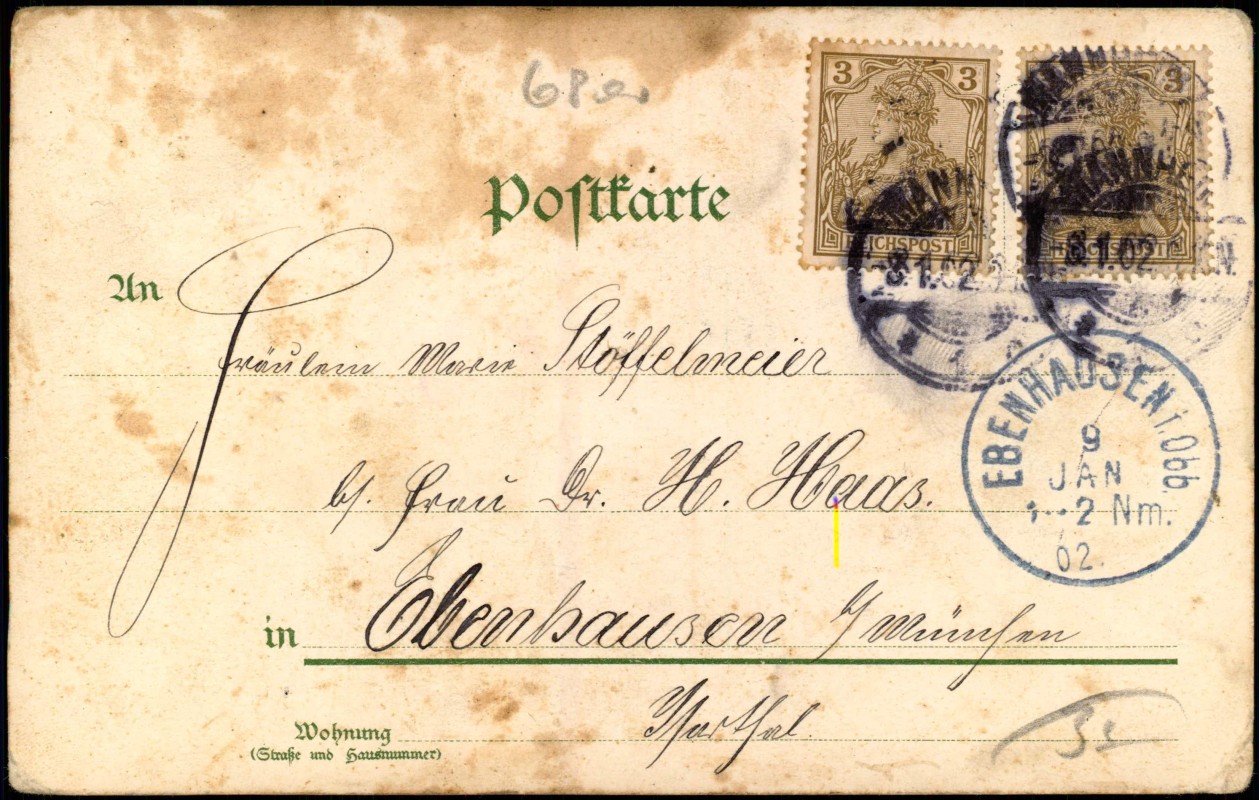 3 3
REICHSPOST
8.1.02
3 3
REICHSPOST
8.1.02 N.
Postkarte
An
Fräulein Marie Stöffelmeier
bs. Frau Dr. H. Haas.
EBENHAUSEN i. Obb.
9
JAN
1-2 Nm.
02.
in Ebenhausen b/ München
Isarthal.
Wohnung
(Straße und Hausnummer)